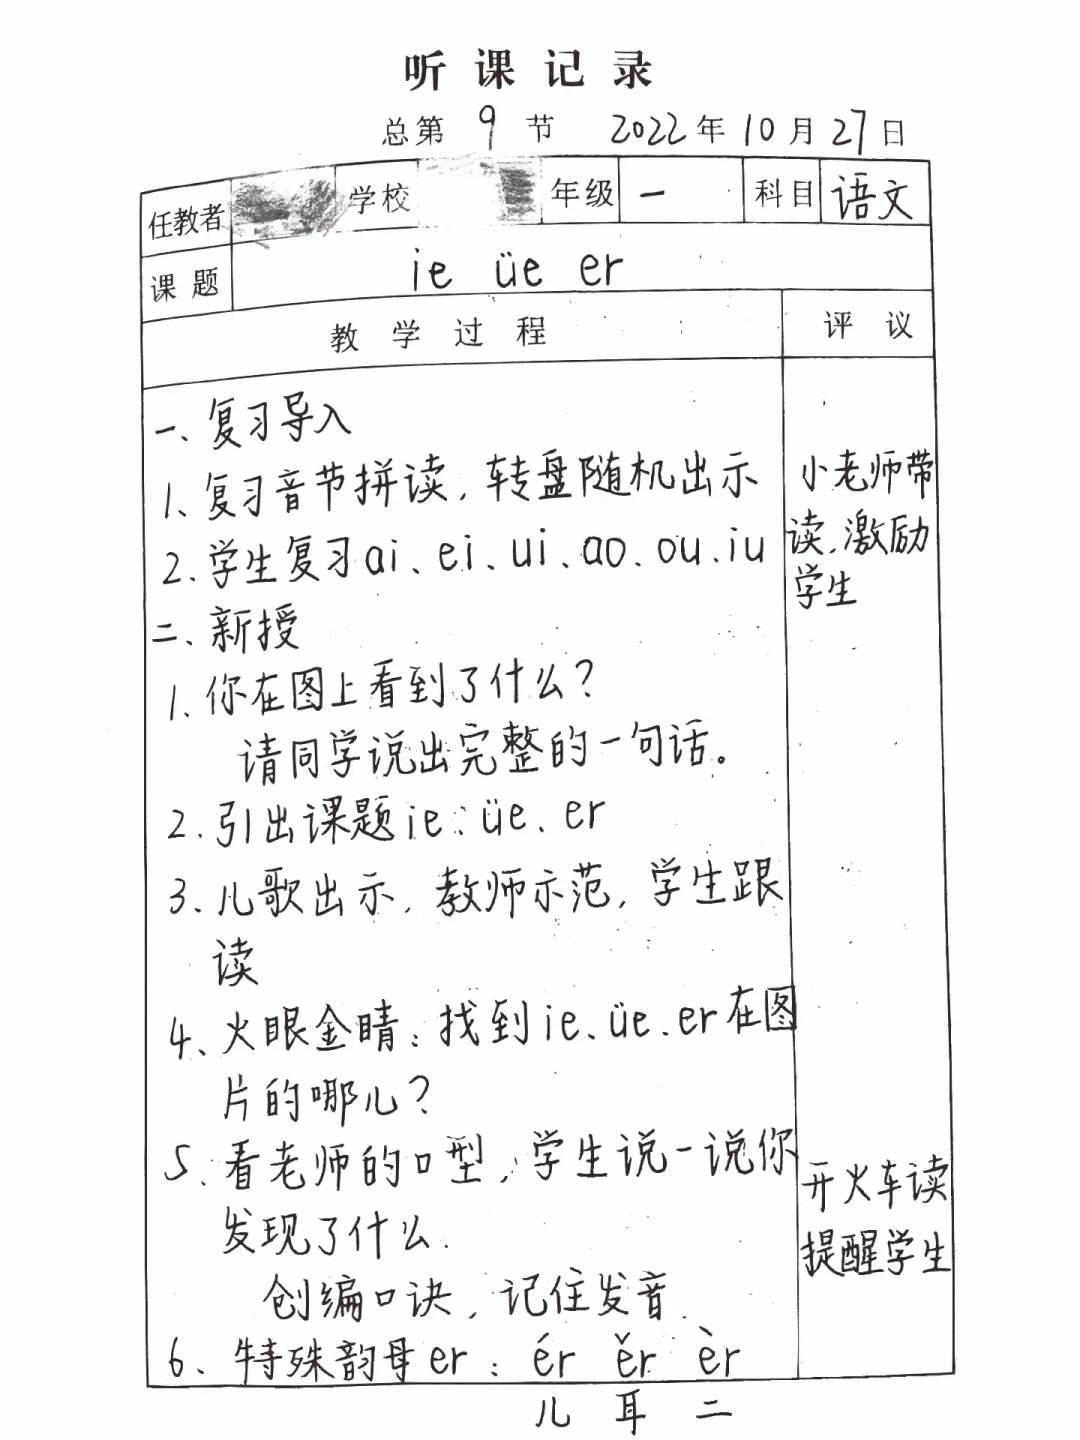 听课记录
总第 9 节 2022年10月27日
任教者 学校 年级 一 科目 语文
课题 ie üe er
教学过程 评议
一、复习导入
1、复习音节拼读，转盘随机出示
2.学生复习ai、ei、ui、ao、ou、iu
二、新授
1.你在图上看到了什么？
请同学说出完整的一句话。
2.引出课题ie、üe、er
3、儿歌出示，教师示范，学生跟
读
4、火眼金睛：找到ie、üe、er在图
片的哪儿？
5、看老师的口型，学生说一说你
发现了什么.
创编口诀，记住发音.
6、特殊韵母er：ér ěr èr
儿 耳 二
小老师带
读，激励
学生
开火车读
提醒学生